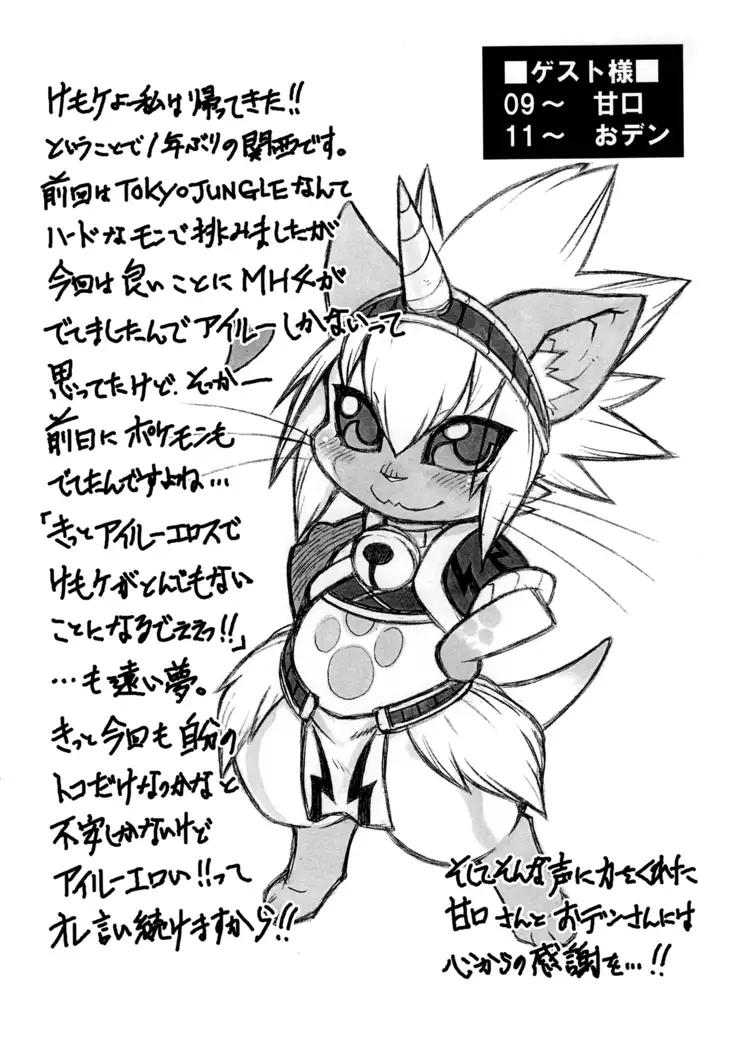 ■ゲスト様■
09～ 甘口
11～ おデン
けもケよー私は帰ってきた!!
ということで1年ぶりの関西です。
前回はTOKYO JUNGLEなんて
ハードなモンで挑みましたが
今回は良いことにMH4が
でてましたんでアイルーしかないって
思ってたけど.そっかー
前日にポケモンも
でてたんですよね…
「きっとアイルーエロスで
けもケがとんでもない
ことになるでええっ!!」
…も遠い夢。
きっと今回も自分の
トコだけなっかなと
不安しかないけど
アイルーエロい!!って
オレ言い続けますから!!
そしてそんな声に力をくれた
甘口さんとおデンさんには
心からの感謝を…!!